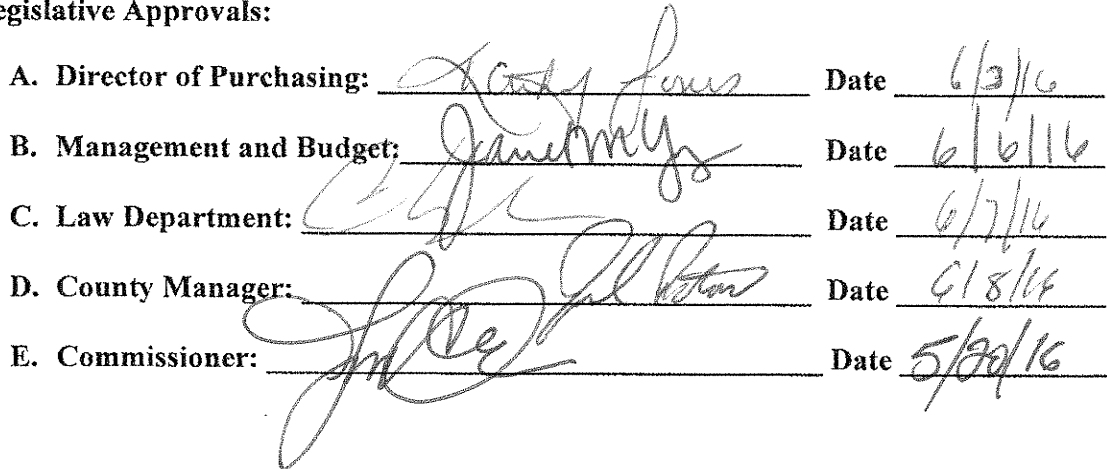 egislative Approvals:
A. Director of Purchasing: Date 6/3/16
B. Management and Budget: Janet Date 6/6/16
C. Law Department: Date 6/7/16
D. County Manager: Date 6/8/16
E. Commissioner: Date 5/20/16